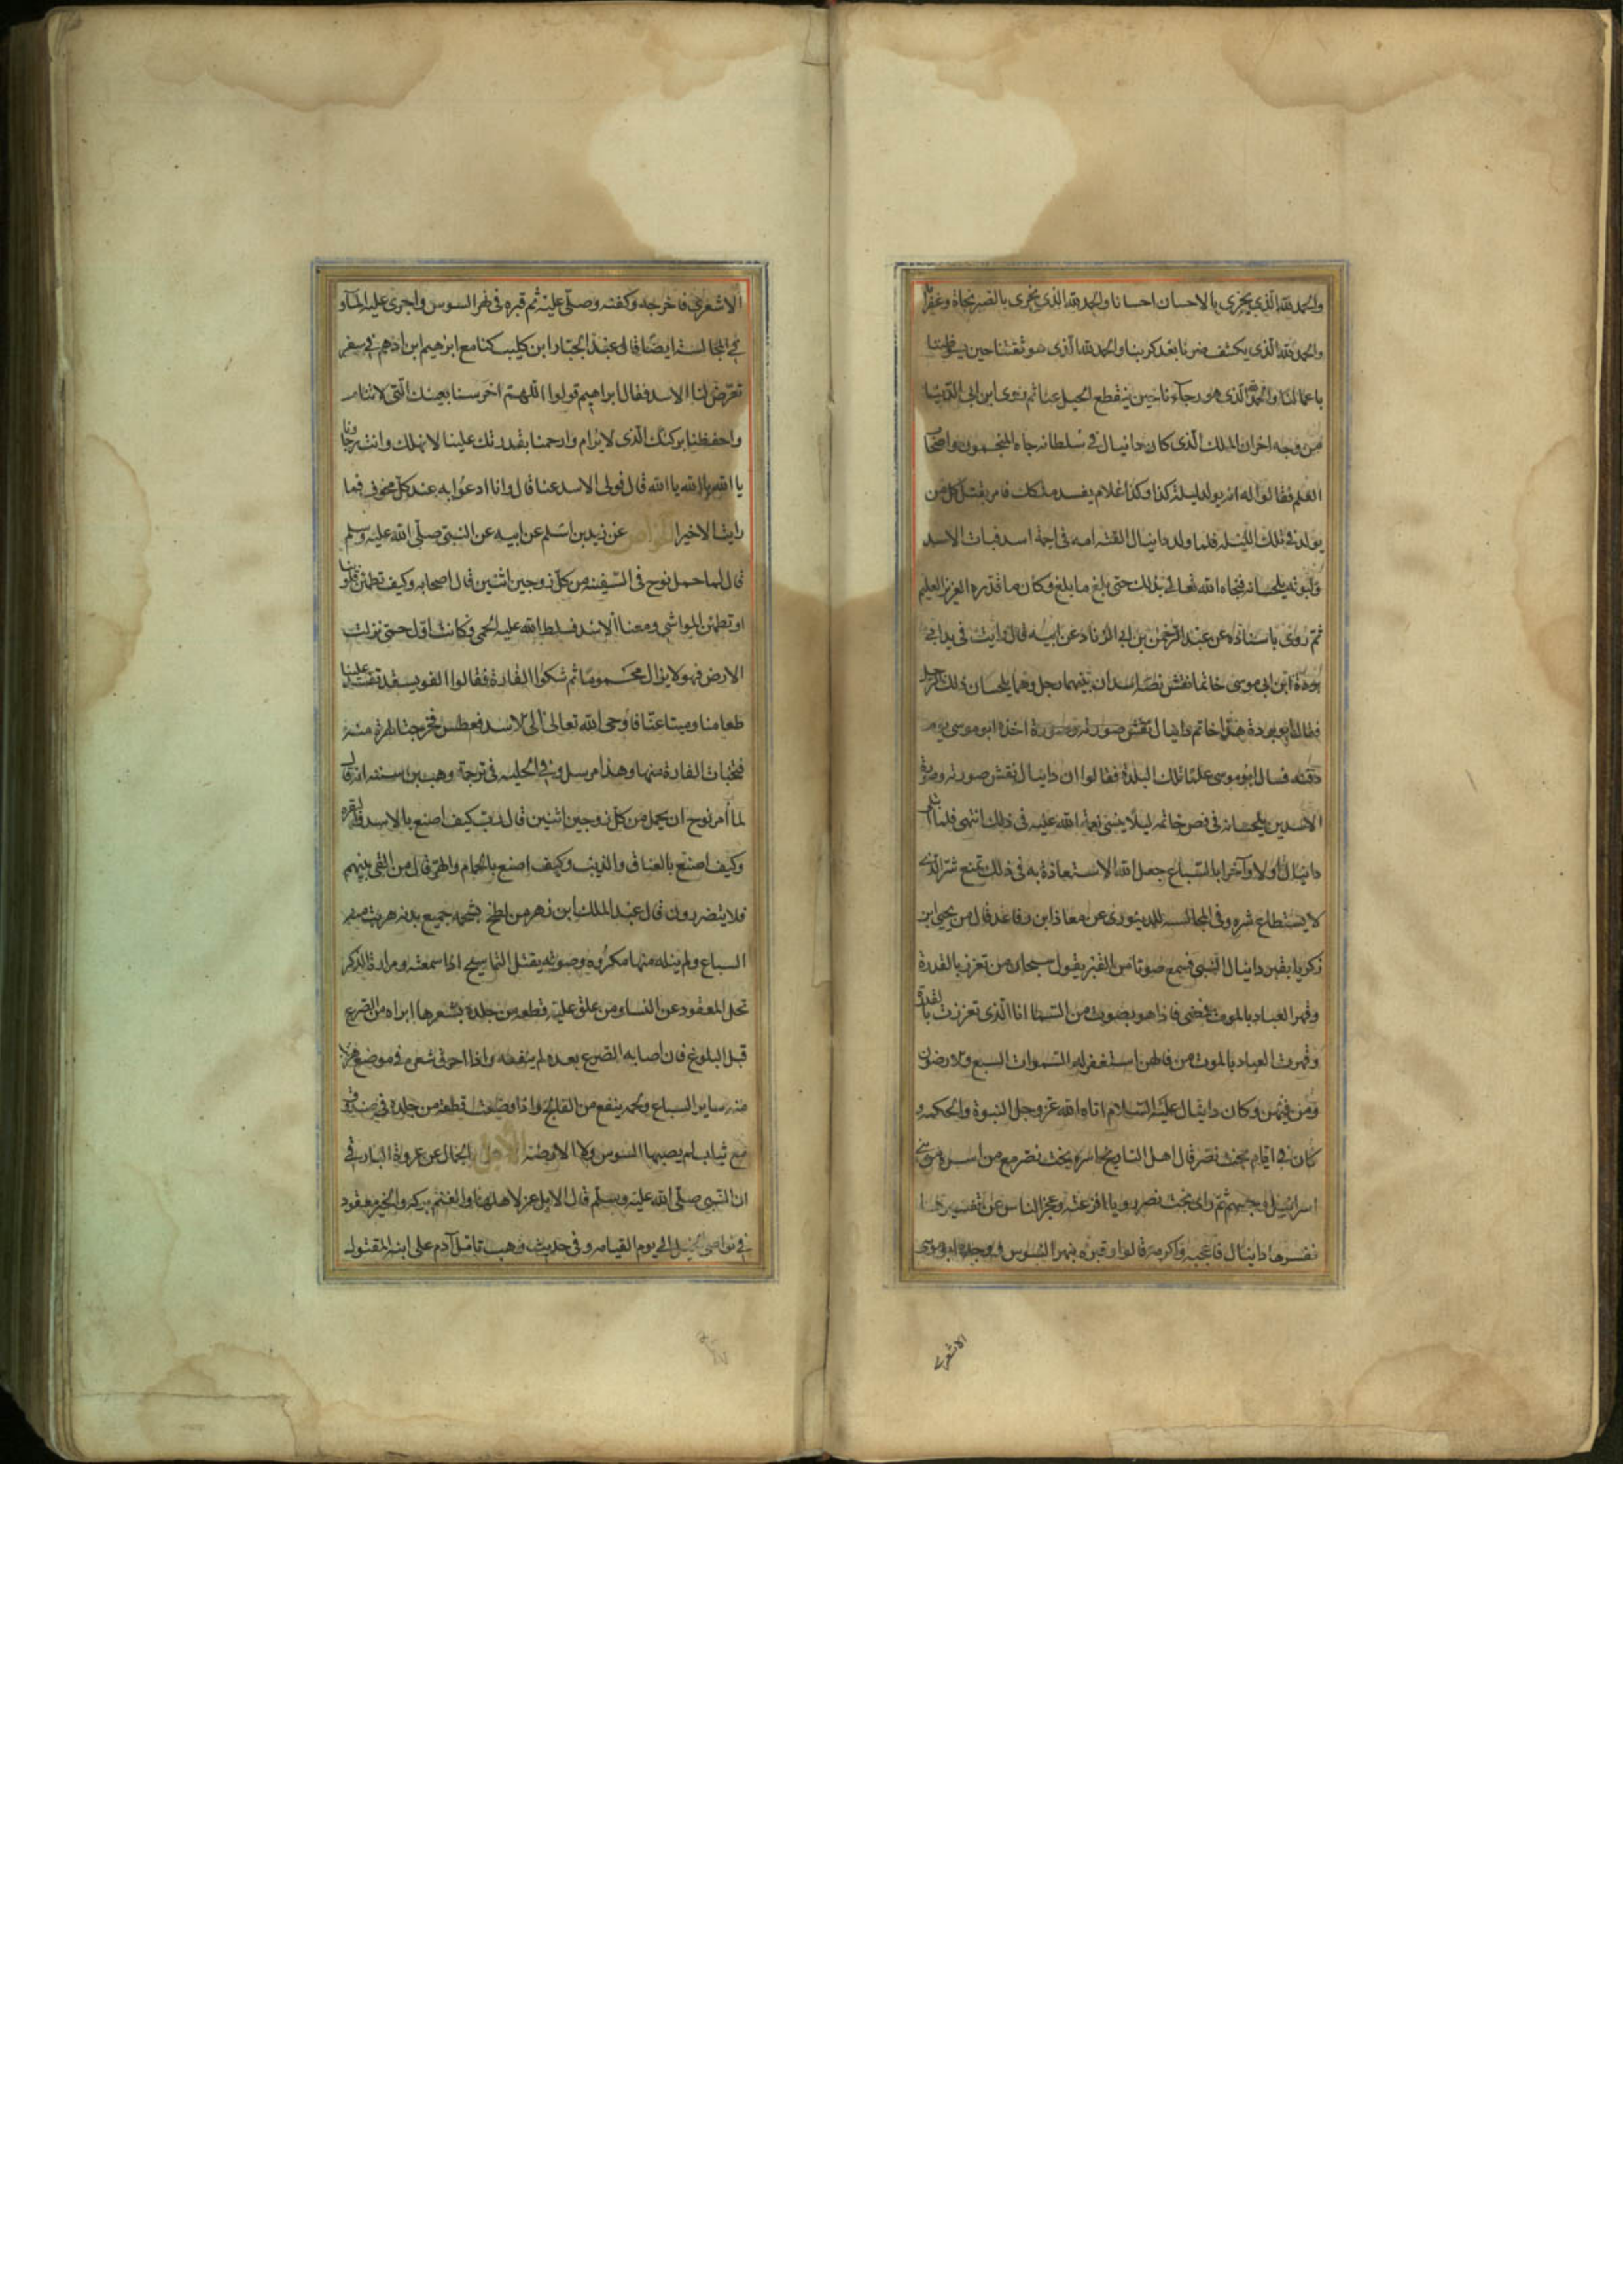 والحمد لله الذي يجزي بالاحسان احسانا والحمد لله الذي يجزي بالصبر نجاة وغفرا
والحمد لله الذي يكشف ضرنا بعد كربنا والحمد لله الذي هو ثقتنا حين يسؤ ظننا
باعمالنا والحمد لله الذي هو رجاءنا حين ينقطع الحيل عنا ثم روى ابن ابي الدنيا
من وجه اخر ان الملك الذي كان دانيال في سلطانه جاه المنجمون واصحاب
العلم فقالوا له انه يولد ليلة كذا وكذا غلام يفسد ملكك فامر بقتل كل من
يولد في تلك الليلة فلما ولد دانيال القته امه في اجمة اسد فبات الاسد
ولبوته يلحسانه فنجاه الله تعالى بذلك حتى بلغ ما بلغ وكان ما قدره العزيز العليم
ثم روى باسناده عن عبد الرحمن بن ابي الزناد عن ابيه قال رايت في يد ابي
بردة ابن ابي موسى خاتما نقش فصه اسدان بينهما رجل وهما يلحسان ذلك الرجل
فقال ابو بردة هذا خاتم دانيال نقش صورته وصورة اخذه ابو موسى يوم
دفنه فسال ابو موسى علما تلك البلدة فقالوا ان دانيال نقش صورته وصورة
الاسدين يلحسانه في فص خاتمه ليلا ينسى نعمة الله عليه في ذلك انتهى فلما ابتلى
دانيال اولا وآخرا بالسباع جعل الله الاستعاذة به في ذلك تمنع شر الذي
لا يستطاع شره وفي المجالسة للدينوري عن معاذ ابن رفاعة قال مر يحيى ابن
زكريا بقبر دانيال النبي فسمع صوتا من القبر يقول سبحان من تعزز بالقدرة
وقهر العباد بالموت فمضى فاذا هو بصوت من السما انا الذي تعززت بالقدرة
وقهرت العباد بالموت من قالهن استغفر له السموات السبع والارضون
ومن فيهن وكان دانيال عليه السلام اتاه الله عز وجل النبوة والحكمة و
كان في ايام بخت نصر قال اهل التاريخ اسره بخت نصر مع من اسره من بني
اسرائيل وحبسهم ثم راى بخت نصر رويا افزعته وعجز الناس عن تفسيرها
ففسرها دانيال فاعجبه واكرمه قالوا وقبره بنهر السوس ووجده ابو موسى
الاشعري
الاشعري فاخرجه وكفنه وصلى عليه ثم قبره في نهر السوس واجرى عليه الماء و
في المجالسة ايضا قال عبد الجبار ابن كليب كنا مع ابرهيم ابن ادهم في سفر
تعرض لنا الاسد فقال ابراهيم قولوا اللهم احرسنا بعينك التي لا تنام
واحفظنا بركنك الذي لا يرام وارحمنا بقدرتك علينا لا نهلك وانت رجاونا
يا الله يا الله يا الله قال فولى الاسد عنا قال وانا ادعو به عند كل مخوف فما
رايت الا خيرا الخواص عن زيد بن اسلم عن ابيه عن النبي صلى الله عليه وسلم
قال لما حمل نوح في السفينة من كل زوجين اثنين قال اصحابه وكيف نطمئن
او تطمئن المواشي ومعنا الاسد فسلط الله عليه الحمى وكانت اول حمى نزلت
الارض فهو لا يزال محموما ثم شكوا الفارة فقالوا الفويسقة تفسد علينا
طعامنا ومتاعنا فاوحى الله تعالى الى الاسد فعطس فخرجت الهرة منه
فتخبات الفارة منها وهذا مرسل وفي الحلية في ترجمة وهب بن منبه انه قال
لما أمر نوح ان يحمل من كل زوجين اثنين قال رب كيف اصنع بالاسد والبقرة
وكيف اصنع بالعناق والذيب وكيف اصنع بالحمام والهر قال من القى بينهم
فلا يتضررون قال عبد الملك ابن زهر من لطخ بشحمه جميع بدنه هربت منه
السباع ولم ينله منها مكروه وصوته يقتل التماسيح اذا سمعته ومرارة الذكر
تحل المعقود عن النساء ومن علق عليه قطعة من جلده بشعرها ابراه من الصرع
قبل البلوغ فان اصابه الصرع بعده لم ينفعه واذا احرق شعره في موضع هرب
منه ساير السباع ولحمه ينفع من الفالج واذا وضعت قطعة من جلده في صندوق
مع ثياب لم يصبها السوس ولا الارضة الابل الجمال عن عروة البارقي
ان النبي صلى الله عليه وسلم قال الابل عز لاهلها والغنم بركة والخير معقود
في نواصي الخيل الى يوم القيامة وفي حديث وهب تامل آدم على ابنه المقتول